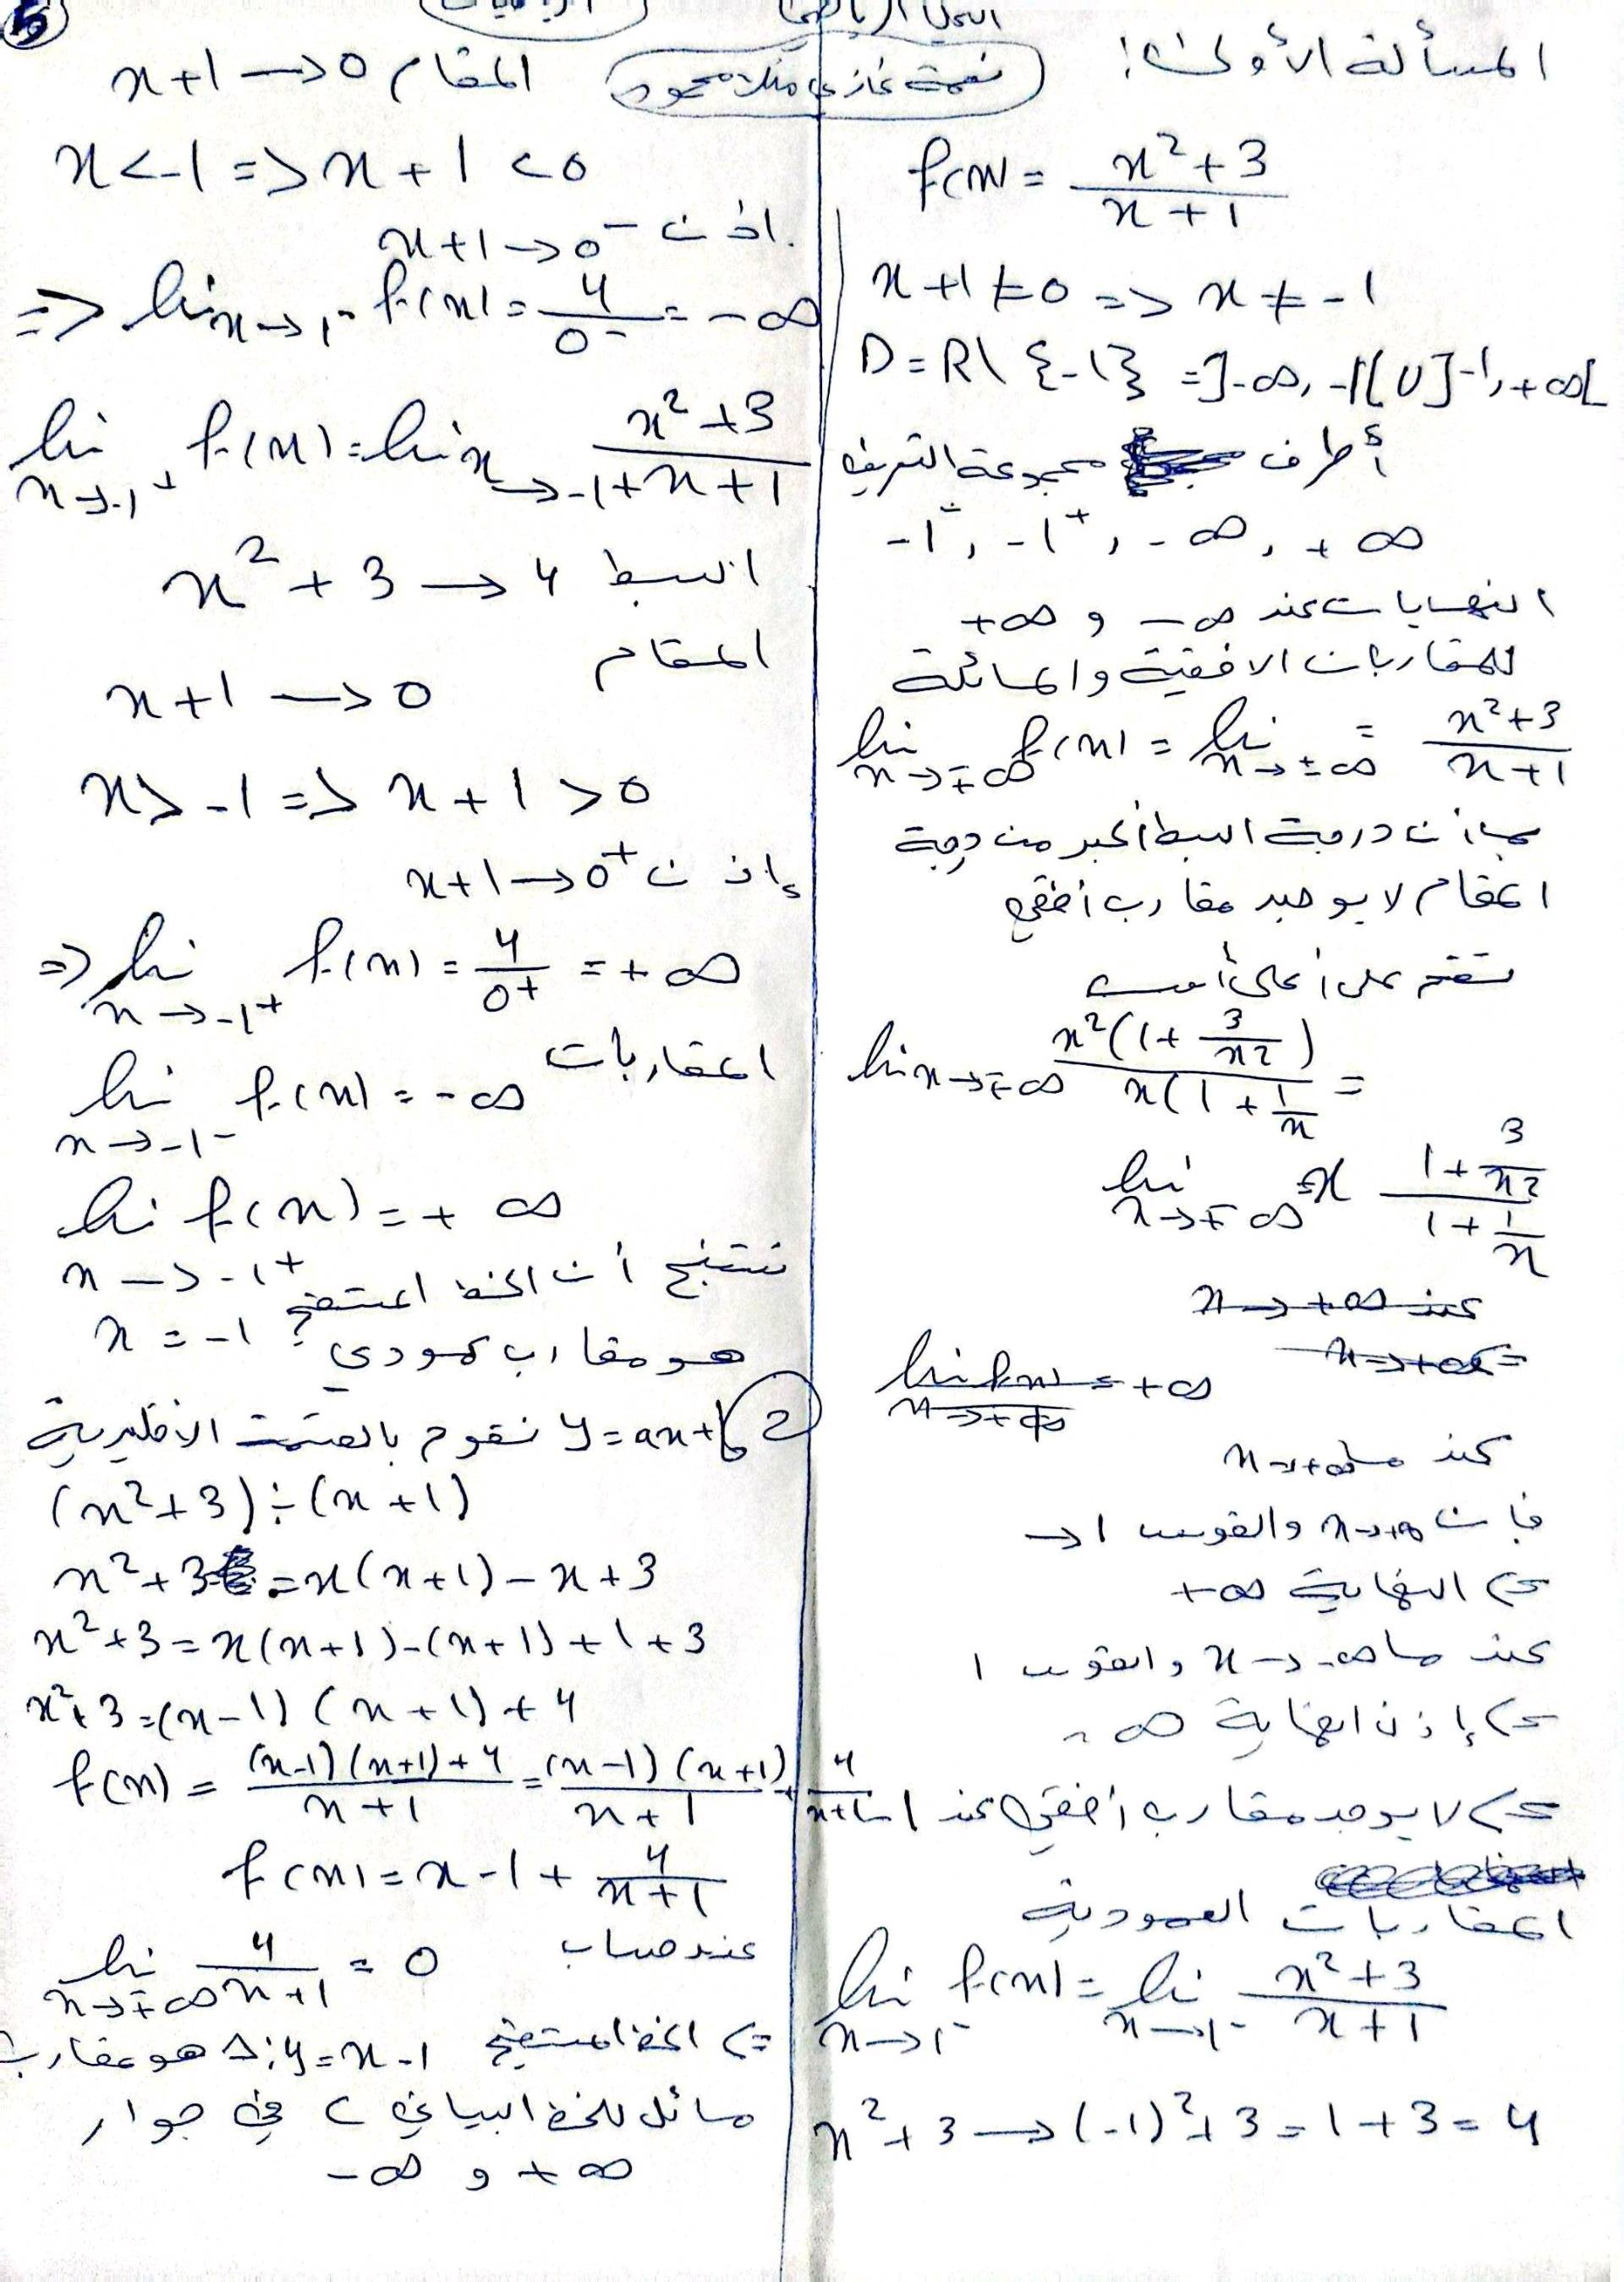 5
المسألة الأولى:
f(x) = \frac{x^2+3}{x+1}
x+1 ≠ 0 => x ≠ -1
D = R\ {-1} = ]-∞, -1[ U ]-1, +∞[
أطراف مجموعة التعريف
-1^-, -1^+, -∞, +∞
النهايات عند -∞ و +∞
للمقاربات الافقية والمائلة
\lim_{x→∓∞} f(x) = \lim_{x→±∞} = \frac{x^2+3}{x+1}
بما أن درجة البسط أكبر من درجة
المقام لا يوجد مقارب أفقي
نقسم على أعلى أس
lim x→∓∞ \frac{x^2(1+\frac{3}{x^2})}{x(1+\frac{1}{x}} =
\lim_{x→∓∞} = x \frac{1+\frac{3}{x^2}}{1+\frac{1}{x}}
عند x→+∞
x→+∞ =
\lim_{x→+∞} f(x) = +∞
عند ما x→+∞
فإن x→+∞ والقوس → 1
=> النهاية +∞
عند ما x→-∞ والقوس 1
=> إذن النهاية -∞
=> لا يوجد مقارب أفقي عند
المقاربات العمودية
\lim_{x→1^-} f(x) = \lim_{x→1^-} \frac{x^2+3}{x+1}
x^2+3 → (-1)^2+3 = 1+3 = 4
المقام x+1 → 0
x < -1 => x+1 < 0
اذن x+1 → 0^-
=> lim x→1^- f(x) = \frac{4}{0^-} = -∞
\lim_{x→-1^+} f(x) = lim x→-1+ \frac{x^2+3}{x+1}
البسط x^2+3 → 4
المقام
x+1 → 0
x > -1 => x+1 > 0
إذن x+1 → 0^+
=> \lim_{x→-1^+} f(x) = \frac{4}{0^+} = +∞
المقاربات
\lim_{x→-1^-} f(x) = -∞
\lim_{x→-1^+} f(x) = +∞
نستنتج أن الخط المستقيم x = -1
هو مقارب عمودي
2 y = ax+b نقوم بالقسمة الاقليدية
(x^2+3) ÷ (x+1)
x^2+3 = x(x+1) - x+3
x^2+3 = x(x+1) - (x+1) + 1+3
x^2+3 = (x-1)(x+1) + 4
f(x) = \frac{(x-1)(x+1)+4}{x+1} = \frac{(x-1)(x+1)}{x+1} + \frac{4}{x+1}
f(x) = x-1 + \frac{4}{x+1}
عند حساب \lim_{x→∓∞} \frac{4}{x+1} = 0
=> الخط المستقيم Δ: y = x-1 هو مقارب
مائل للخط البياني C في جوار
+∞ و -∞